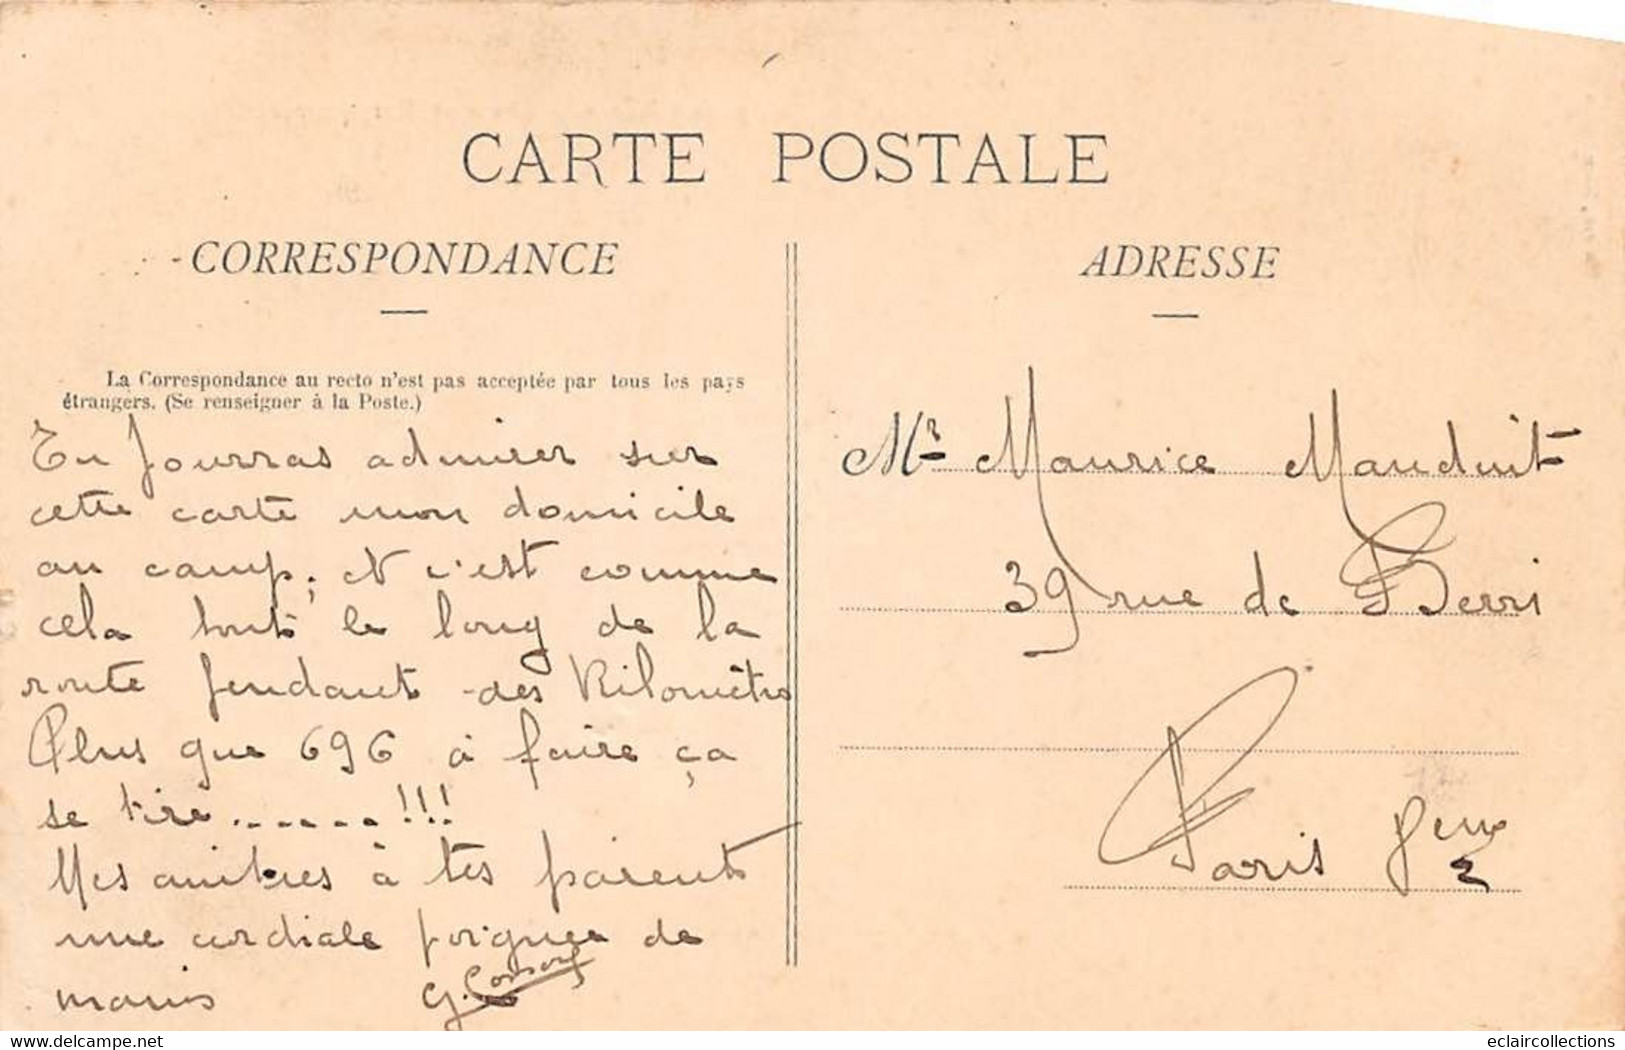 CARTE POSTALE
CORRESPONDANCE
La Correspondance au recto n'est pas acceptée par tous les pays
étrangers. (Se renseigner à la Poste.)
Tu pourras admirer sur
cette carte mon domicile
au camp; et c'est comme
cela tout le long de la
route pendant des Kilomètres
Plus que 696 à faire ça
se tire.......!!!
Mes amitiés à tes parents
une cordiale poignée de
mains
ADRESSE
Mr Maurice Mauduit
39 rue de Berri
Paris 8eme
www.delcampe.net
eclaircollections